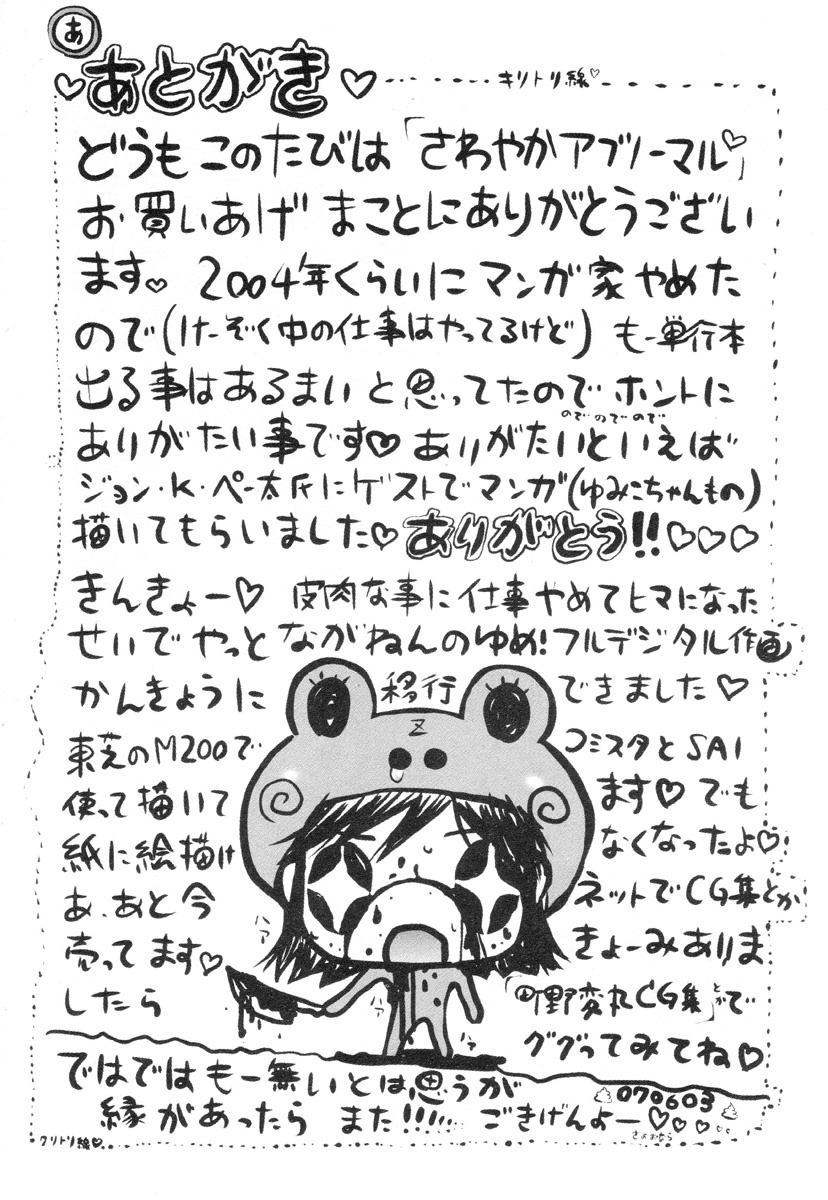 あ
あとがき
キリトリ線
どうも このたびは「さわやかアブノーマル♡」
お買いあげ まことにありがとうござい
ます♡ 2004年くらいに マンガ家やめた
ので(けーぞく中の仕事はやってるけど) もー単行本
出る事はあるまいと思ってたのでホントに
のでのでので
ありがたい事です♡ ありがたいといえば
ジョン・K・ペー太氏にゲストでマンガ(ゆみこちゃんもの)
描いてもらいました♡ ありがとう!!♡♡♡
きんきょー♡ 皮肉な事に仕事やめてヒマになった
せいでやっと ながねんのゆめ!フルデジタル作画
かんきょうに 移行 できました♡
東芝のM200で コミスタとSAI
使って描いて ます♡ でも
紙に絵描け なくなったよ♡
あ、あと今 ネットでCG集とか
売ってます♡ きょーみありま
したら 「町野変丸CG集」とかで
ググってみてね♡
Z
ハァ
ハァ
ではではもー無いとは思うが
縁があったら また!!!!!! ごきげんよー♡♡♡♡
070603
さよおなら
クリトリ線♡